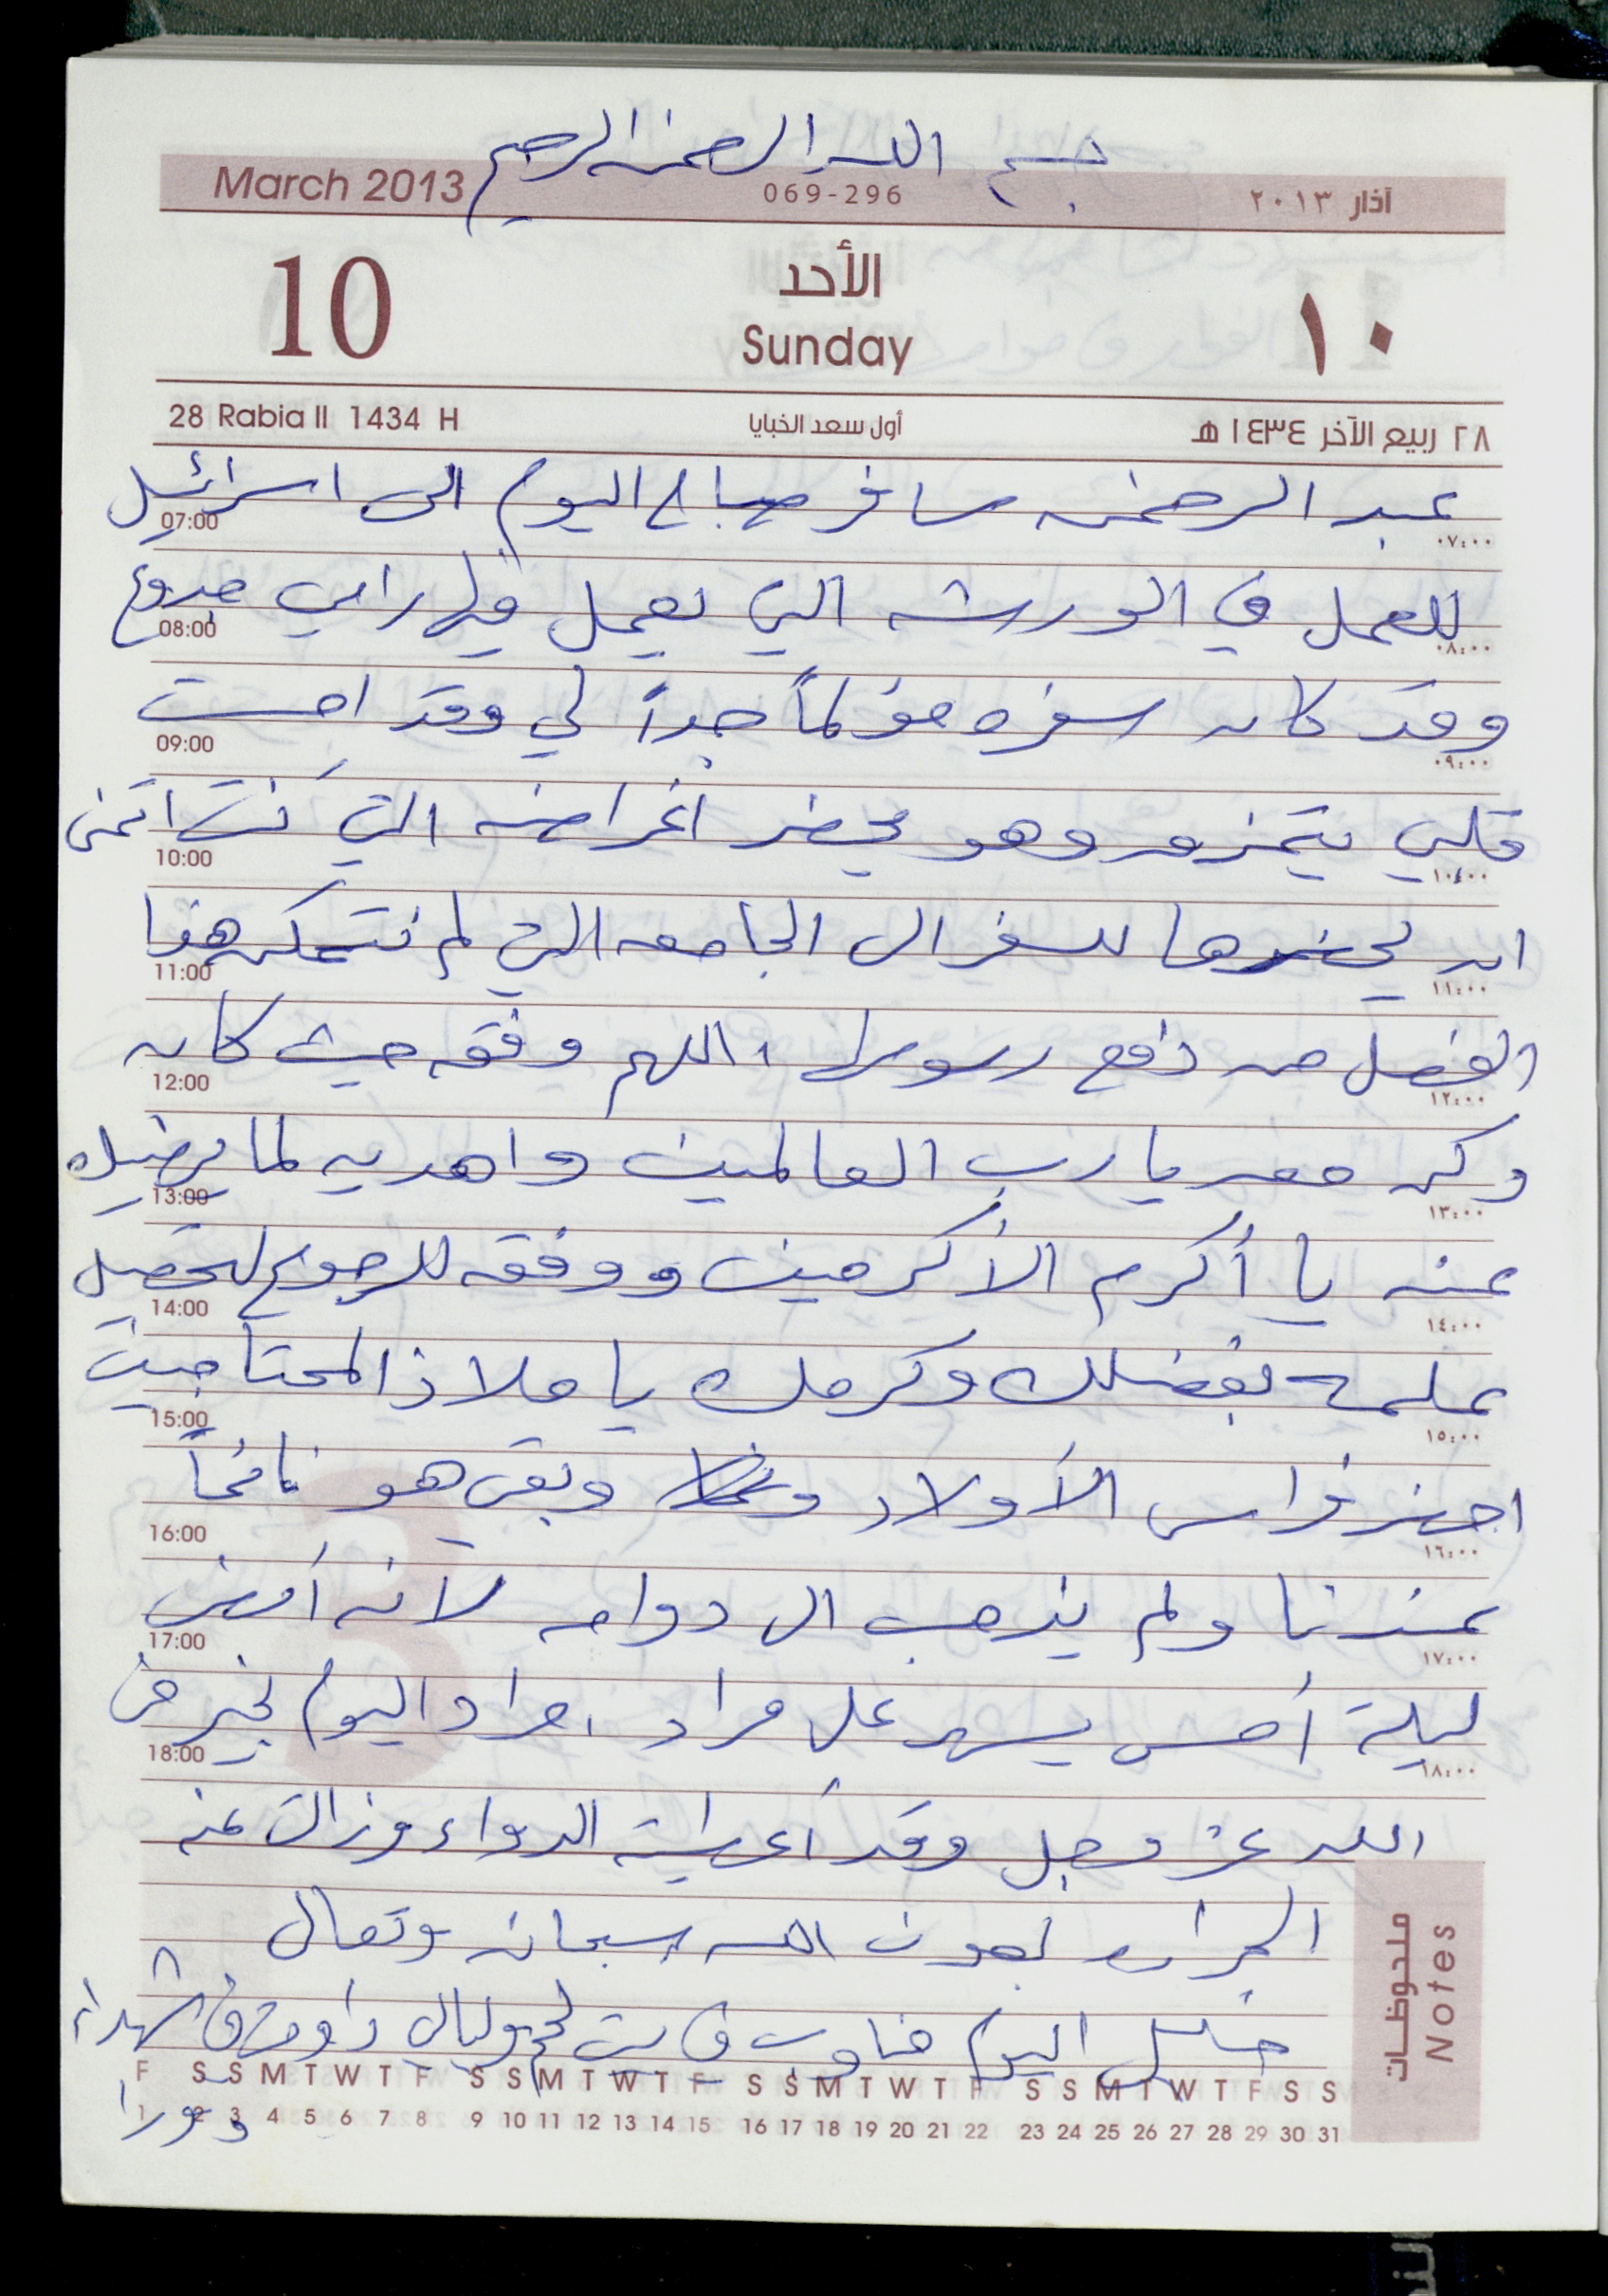 بسم الله الرحمن الرحيم
March 2013 069-296 آذار ٢٠١٣
10 الأحد ١٠
Sunday
28 Rabia II 1434 H أول سعد الخبايا ٢٨ ربيع الآخر ١٤٣٤ هـ
عبد الرحمن سافر صباح اليوم الى اسرائيل
07:00 ٠٧:٠٠
للعمل في الورشه التي يعمل فيها رامي
08:00 ٠٨:٠٠
وقد كان سفره مؤلماً جداً لي وقد احست
09:00 ٠٩:٠٠
قلبي يتمزق وهو يحضر اغراضه التي كنت اتمنى
10:00 ١٠:٠٠
ان يحضرها للسفر الى الجامعه التي لم نتمكن هذا
11:00 ١١:٠٠
الفصل من دفع رسومها ، اللهم وفقه حيث كان
12:00 ١٢:٠٠
وكن معه يا رب العالمين واهديه لما يرضيك
13:00 ١٣:٠٠
عنه يا أكرم الأكرمين ووفقه للرجوع لتحصيل
14:00 ١٤:٠٠
علمه بفضلك وكرمك يا ملاذ المحتاجين
15:00 ١٥:٠٠
اجهز فراس الأولاد وبقى هو نائماً
16:00 ١٦:٠٠
عندنا ولم يذهب الى دوامه لانه أمضى
17:00 ١٧:٠٠
ليلة أمس يسهر على مراد ، مراد اليوم بخير من
18:00 ١٨:٠٠
الله عز وجل وقد أعطيته الدواء وزالت عنه
الحراره بعون الله سبحانه وتعالى
اليوم مناوب في بيت لحم وليالي داوم في شهداء
دورا
ملحوظات Notes
F S S M T W T F S S M T W T F S S M T W T F S S M T W T F S S
1 2 3 4 5 6 7 8 9 10 11 12 13 14 15 16 17 18 19 20 21 22 23 24 25 26 27 28 29 30 31